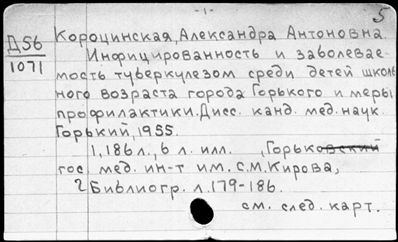 - 1 -
5
Д56
1071
Короцинская, Александра Антоновна.
Инфицированность и заболевае-
мость туберкулезом среди детей школь-
ного возраста города Горького и меры
профилактики. Дисс. канд. мед. наук.
Горький, 1955.
1, 186 л., 6 л. илл. , Горьковский
гос. мед. ин-т им. С.М. Кирова,
2 Библиогр. л. 179-186.
см. след. карт.